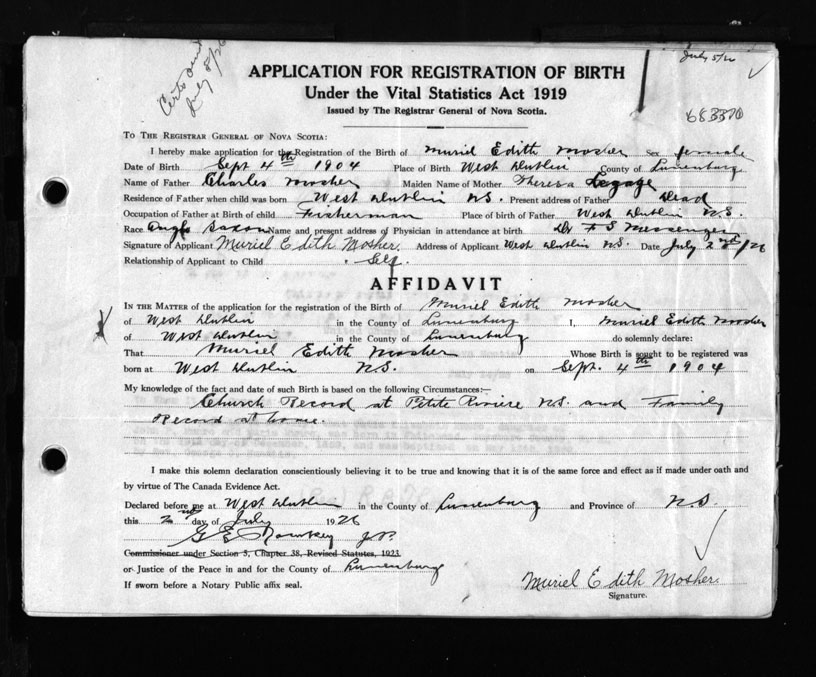 July 5/26
July 8/26
APPLICATION FOR REGISTRATION OF BIRTH
Under the Vital Statistics Act 1919
Issued by The Registrar General of Nova Scotia.
TO THE REGISTRAR GENERAL OF NOVA SCOTIA:
I hereby make application for the Registration of the Birth of Muriel Edith Mosher Sex female
Date of Birth Sept 4th 1904 Place of Birth West Dublin County of Lunenburg
Name of Father Charles Mosher Maiden Name of Mother Theresa
Residence of Father when child was born West Dublin N.S. Present address of Father Dead
Occupation of Father at Birth of child Fisherman Place of birth of Father West Dublin N.S.
Race Anglo Saxon Name and present address of Physician in attendance at birth Dr F S Messenger
Signature of Applicant Muriel Edith Mosher. Address of Applicant West Dublin N.S. Date July 2nd/26
Relationship of Applicant to Child Self.
AFFIDAVIT
IN THE MATTER of the application for the registration of the Birth of Muriel Edith Mosher
of West Dublin in the County of Lunenburg I, Muriel Edith Mosher
of West Dublin in the County of Lunenburg do solemnly declare:
That Muriel Edith Mosher Whose Birth is sought to be registered was
born at West Dublin N.S. on Sept. 4th 1904
My knowledge of the fact and date of such Birth is based on the following Circumstances:—
Church Record at Petite Riviere N.S. and Family
Record at home.
I make this solemn declaration conscientiously believing it to be true and knowing that it is of the same force and effect as if made under oath and
by virtue of The Canada Evidence Act.
Declared before me at West Dublin in the County of Lunenburg and Province of N.S.
this 2nd day of July 1926
G E J.P.
Commissioner under Section 5, Chapter 38, Revised Statutes, 1923
or Justice of the Peace in and for the County of Lunenburg
If sworn before a Notary Public affix seal.
Muriel Edith Mosher.
Signature.